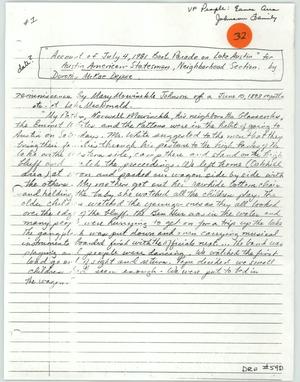 VF People: Eanes Area
Johnson Family
#1
32
date?
"Account of July 4, 1981 Boat Parade on Lake Austin" for
Austin American-Statesman, Neighborhood Section, by
Dorothy
Reminiscence by Mary Maverick Johnson of a June 10, 1893
at Lake MacDonald.
My Father, Maverick, his neighbors the Glasscocks,
the Emmet Whites and the Pattons were in the habit of going to
Austin on Sundays. Mr. White arranged to the men that they
bring their families through his pastures to the high bank of the
lake with west side, camp there and stand on the high
bluff and watch the proceedings. We left home (Oakhill
area) at noon and packed our wagon side by side with
the others. My mother got out her rawhide bottom chair
and holding the baby she watched all the children play. The
older children watched the younger ones as they all looked
over the edge of the bluff. The Ben Hur was in the water and
many people were hurrying to get on for a trip up the lake
the gangplank was put down and men carrying musical
instruments boarded first with the officials next. The band was
playing and people were dancing. We watched the first
load go out of sight and return. Papa decided we small
children had seen enough. We were put to bed in
the wagon.
DRO #59D